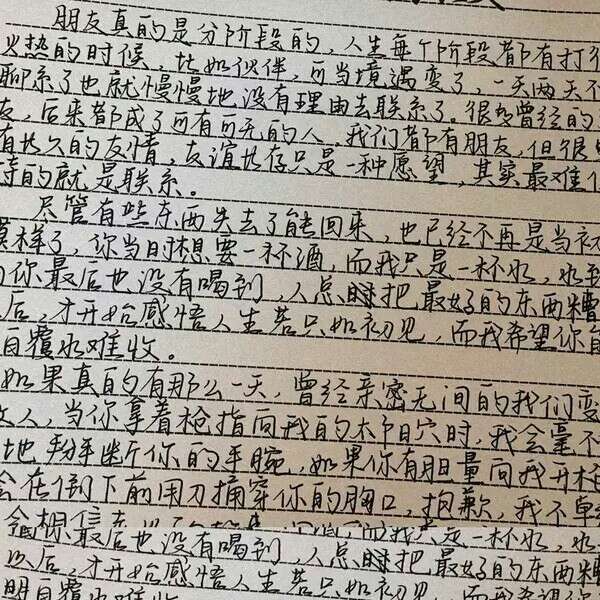 朋友真的是分阶段的，人生每个阶段都有打
火热的时候，比如伙伴，可当境遇变了，一天两天不
聊系了也就慢慢地没有理由去联系了。很多曾经的
友，后来都成了可有可无的人。我们都有朋友，但很
有长久的友情，友谊长存只是一种愿望，其实最难
的就是联系。
尽管有些东西失去了能回来，也已经不再是当初
模样了，你当时想要一杯酒，而我只是一杯水，水
你最后也没有喝到，人总时把最好的东西糟
后，才开始感悟人生若只如初见，而我希望你
白覆水难收。
如果真的有那么一天，曾经亲密无间的我们变
人，当你拿着枪指向我的太阳穴时，我会毫不
地掰断你的手腕，如果你有胆量向我开枪
会在倒下前用刀捅穿你的胸口，抱歉，我不
而我只是一杯水，水
最后也没有喝到，人总时把最好的东西糟
以后，才开始感悟人生若只如初见，而我希望你
明白覆水难收